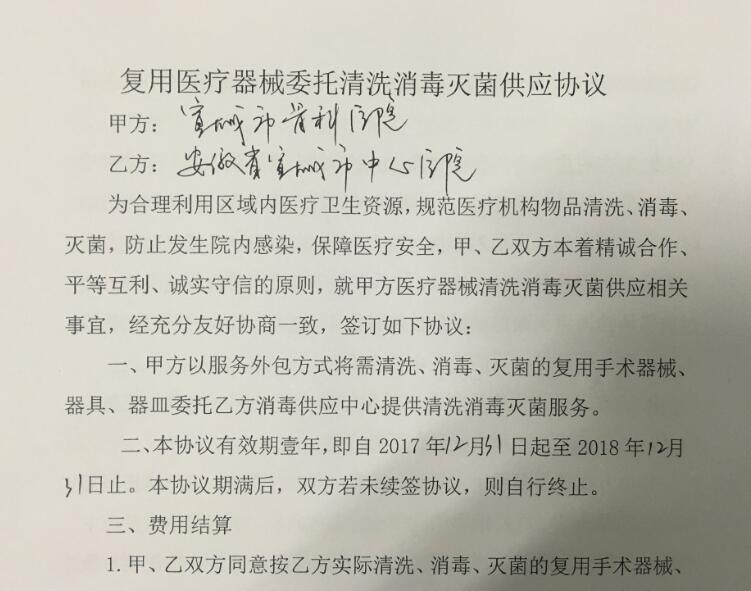 复用医疗器械委托清洗消毒灭菌供应协议
甲方：宣城市骨科医院
乙方：安徽省宣城市中心医院
为合理利用区域内医疗卫生资源，规范医疗机构物品清洗、消毒、
灭菌，防止发生院内感染，保障医疗安全，甲、乙双方本着精诚合作、
平等互利、诚实守信的原则，就甲方医疗器械清洗消毒灭菌供应相关
事宜，经充分友好协商一致，签订如下协议：
一、甲方以服务外包方式将需清洗、消毒、灭菌的复用手术器械、
器具、器皿委托乙方消毒供应中心提供清洗消毒灭菌服务。
二、本协议有效期壹年，即自 2017 年12月31日起至 2018 年12月
31日止。本协议期满后，双方若未续签协议，则自行终止。
三、费用结算
1.甲、乙双方同意按乙方实际清洗、消毒、灭菌的复用手术器械、